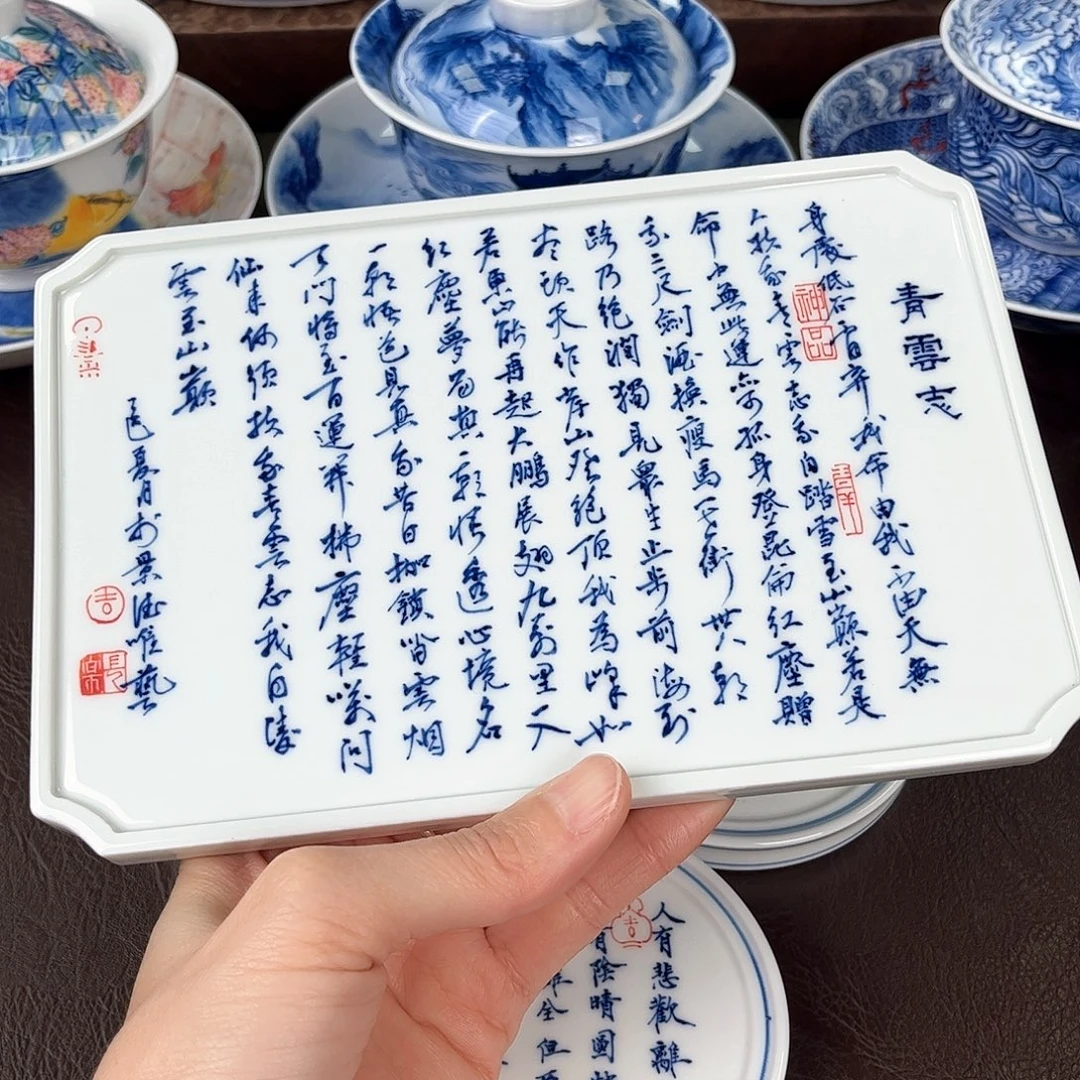 青雲志
身處低谷不自弃我命由我不由天無
人扶我青雲志我自踏雪至山巔若是
命中無此運亦可孤身登昆侖紅塵贈
我三尺劍酒換瘦馬一世朝
路乃絕澗獨見眾生止步前海到
盡頭天作岸山登絕頂我為峰如
若東山能再起大鵬展翅九萬里一入
紅塵夢為真一朝悟透心境名
一朝悟道見真我昔日枷鎖皆雲烟
天門將至百運開拂塵輕笑問
仙來何須扶我青雲志我自凌
雲至山巔
乙巳暮月於景德唯藝
神品
吉祥
吉
人有悲歡離
有陰晴圓
難全但